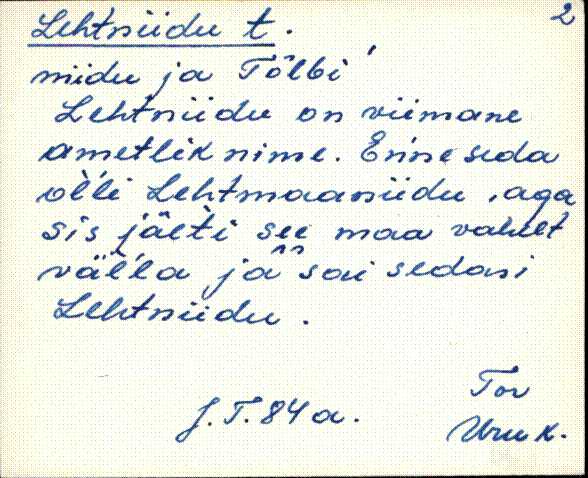 Lehtniidu t.
2
niidu ja Tõlbi
Lehtniidu on viimane
ametlik nime. Enne seda
ol'li Lehtmaaniidu, aga
sis jäeti see maa vahelt
väl'la ja sai sedasi
Lehtniidu.
J.T. 84 a.
Tor
Uru k.